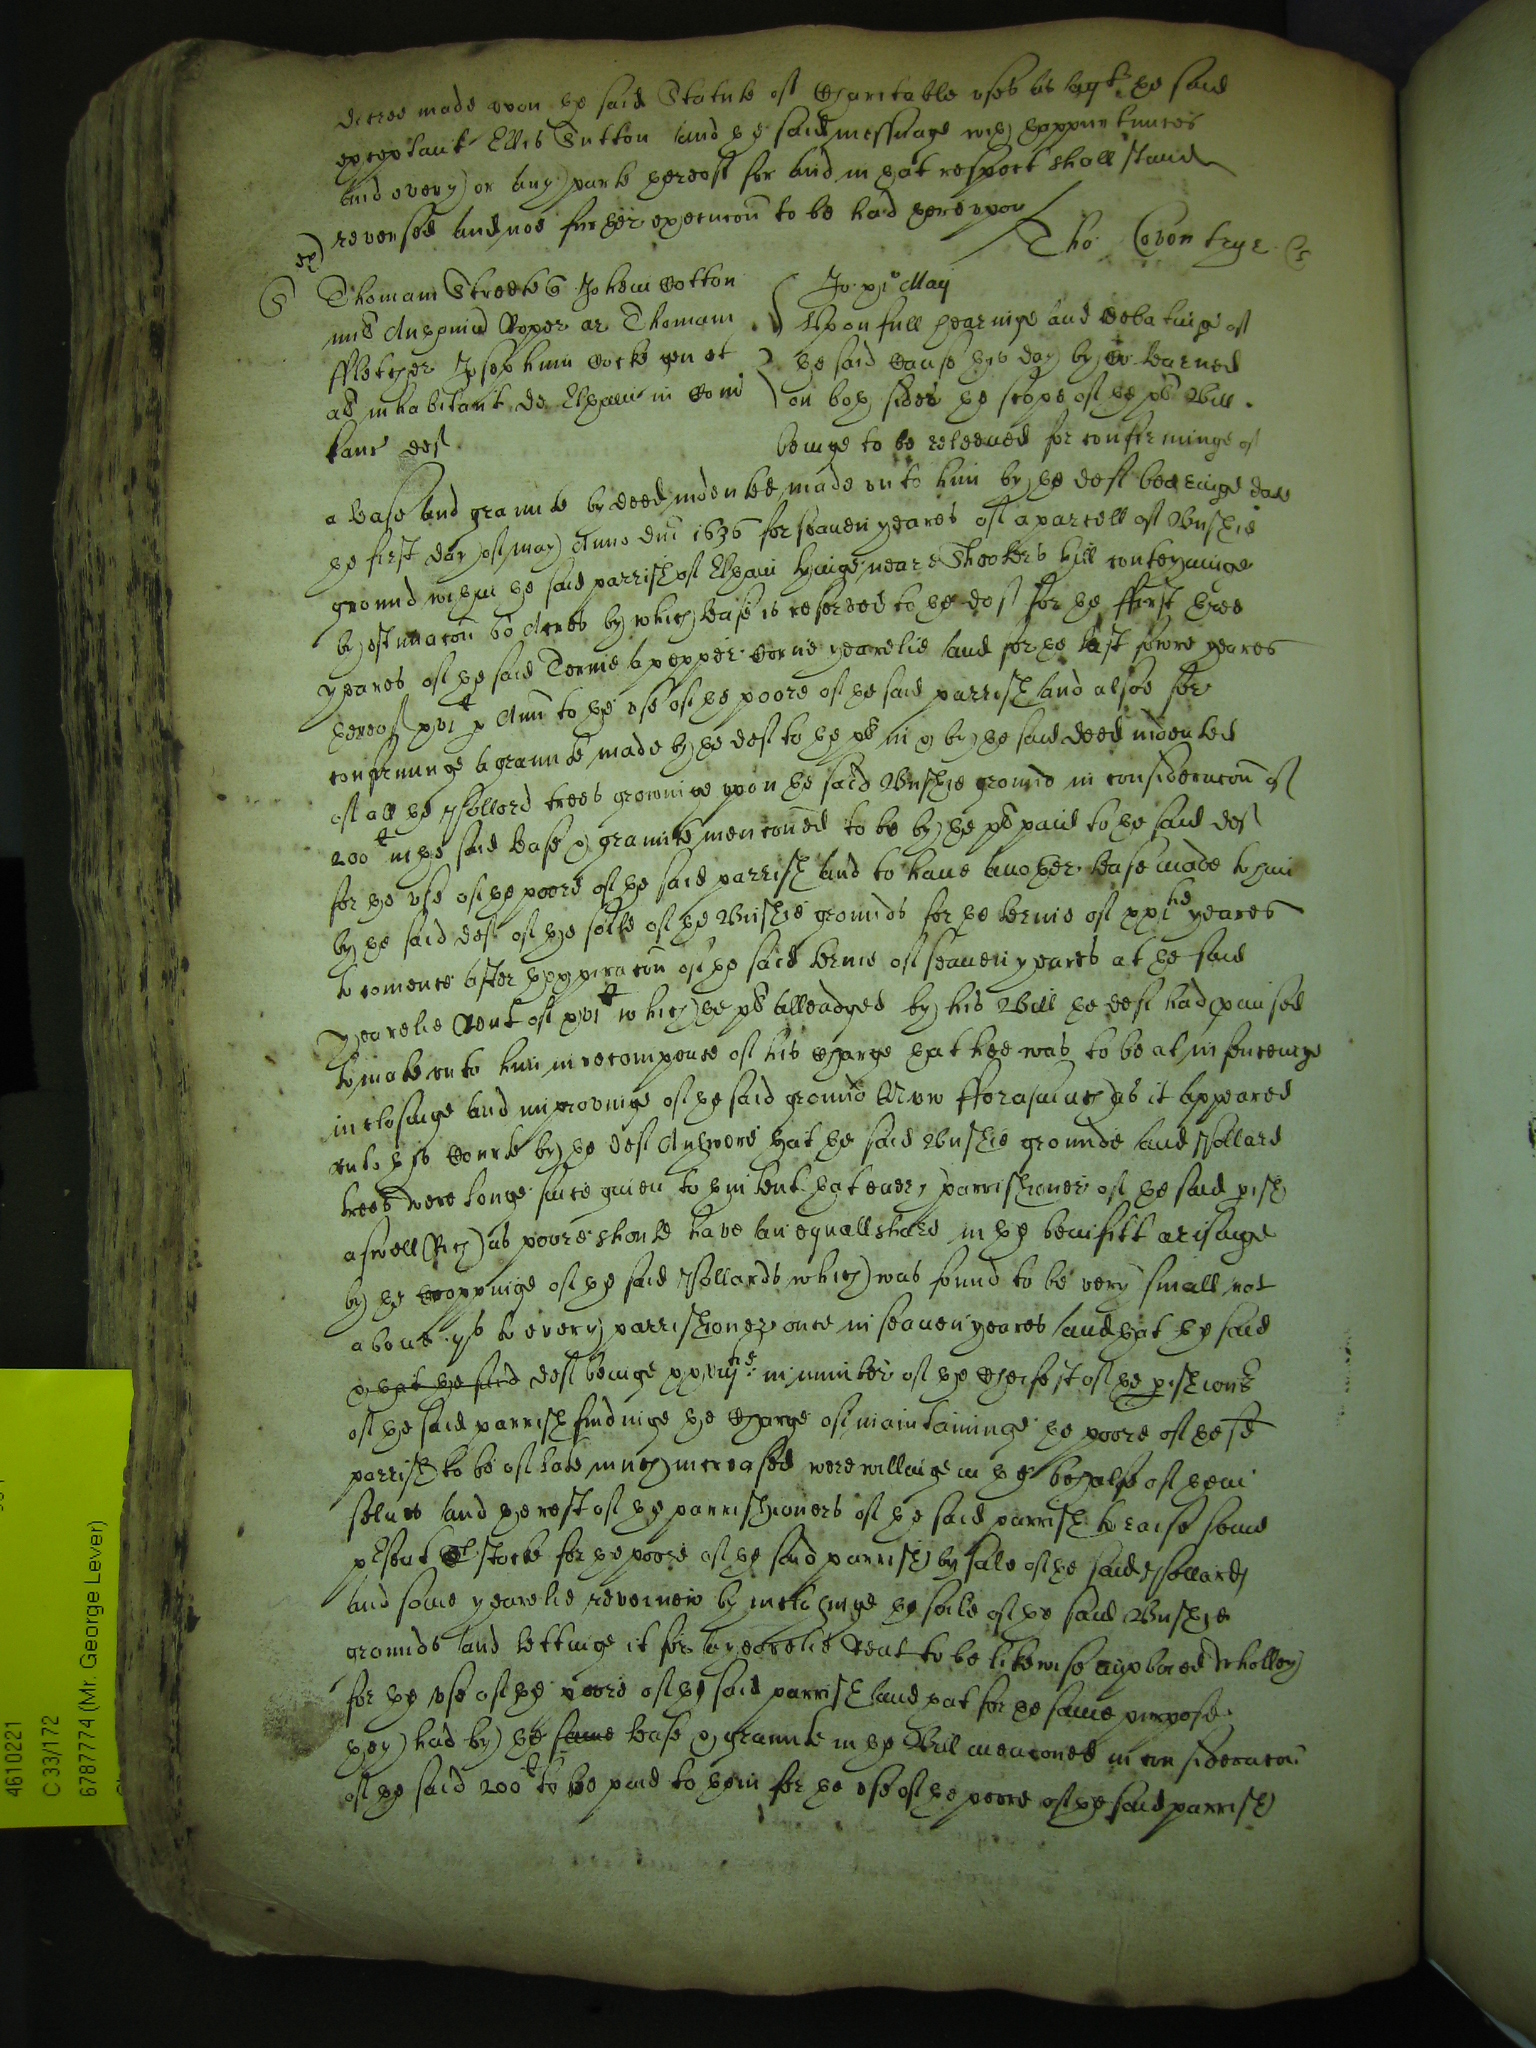 decree made upon the said Statute of Charitable uses as agt the said
exceptant Ellis Sutton and the said messuage with thappurtennces
and every or any parte thereof for and in that respect shall stand
reversed and noe further execucon to be had thereupon
Tho: Coventrye
Thomam Streete Johem Cotton
Jo: xjo Maij
mil Anthoniu Roper ar Thomam
Upon full hearinge and debatinge of
ffletcher Josephum Cocke gen et
the said cause this day by Co: learned
al inhabitant de Eltham in Com
on both sides the scope of the pl Bill
Kanc def
beinge to be releeved for confirminge of
a lease and graunte by deed indented made unto him by the deft bearinge date
the first day of may Anno dni 1636 for seaven yeares of a parcell of Bushie
ground within the said parrish of Eltham lyinge neare Shooters hill conteyninge
by estimacon 60 Acres by which lease is reserved to the def for the ffirst three
yeares of the said Terme a pepper corne yearelie and for the last fowre yeares
thereof xvjl p Ann to the use of the poore of the said parrish and alsoe for
confirminge a graunte made by the deft to the pl in & by the said deed indented
of all the Pollord trees growinge upon the said Bushie ground in consideracon of
200l in the said lease & graunte mencioned to be by the pl paid to the said def
for the use of the poore of the said parrish and to have another lease made to him
by the said deft of the soile of the Bushie grounds for the terme of xxjthe yeares
to comence after thexpiracon of the said terme of seaven yeares at the said
yearelie Rent of xvjl which the pl alleadged by his Bill the deft had pmised
to make unto him in recompence of his charge that hee was to be at in fenceinge
inclosinge and improvinge of the said ground Now fforasmuch as it appeared
unto this Courte by the deft Answere that the said Bushie grounde and Pollard
trees were longe since given to thintent that every parrishioner of the said pish
aswell Rich as poore should have an equall share in the benifitt arisinge
by the croppinge of the said Pollards which was found to be very small not
above ijs to every parrishioner once in seaven yeares and that the said
& that the said deft beinge xxviijthe in number of the cheifest of the pishion's
of the said parrish findinge the charge of maintaininge the poore of the sd
parrish to be of late much increased were willinge in the behalfe of them
selves and the rest of the parrishioners of the said parrish to raise some
psent stocke for the poore of the said parrish by sale of the said Pollards
and some yearelie revenew by inclosinge the soile of the said Bushie
grounds and lettinge it for a yearelie Rent to be likewise imployed wholley
for the use of the poore of the said parrish and that for the same purpose
they had by the same lease & graunte in the Bill mencioned in consideracon
of the said 200l to be paid to them for the use of the poore of the said parrish
4610221
C 33/172
6787774 (Mr. George Lever)